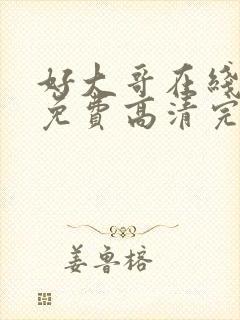 好大哥在线
免费高清完
姜鲁榕